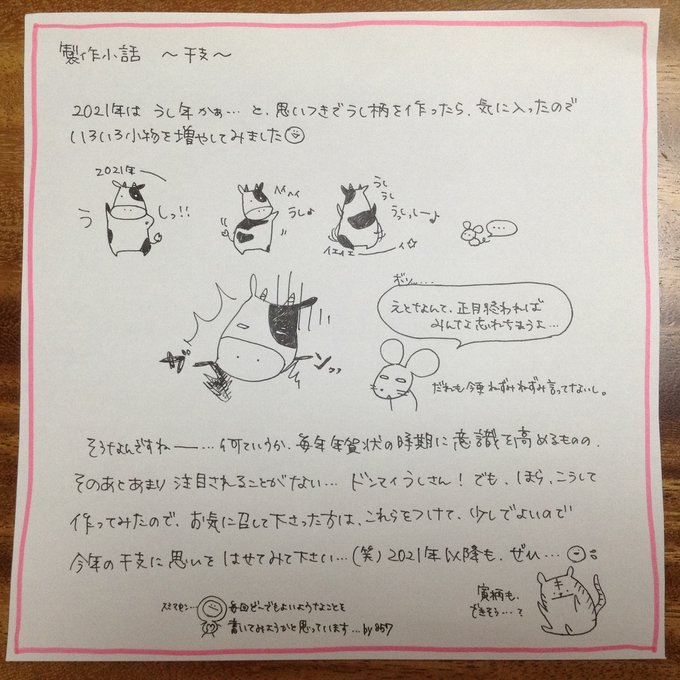 製作小話 〜干支〜
2021年は うし年かぁ… と、思いつきでうし柄を作ったら、気に入ったので
いろいろ小物を増やしてみました
2021年
う しっ!!
ヘイヘイ
うしょ
うし
うし
うっしっしー♪
イエイエ
イ
…
ガ ーンッ
ボソ……
えとなんて、正月終われば
みんな忘れちまうよ…
だれも今更ねずみねずみ言ってないし。
そうなんですねー…何ていうか、毎年年賀状の時期に意識を高めるものの、
そのあとあまり注目されることがない… ドンマイうしさん! でも、ほら、こうして
作ってみたので、お気に召して下さった方は、これらをつけて、少しでよいので
今年の干支に思いを はせてみて下さい…(笑) 2021年以降も、ぜひ…
スミマセン…
毎回どーでもよいようなことを
書いてみようかと思っています…by 857
寅柄も、
できそう…?